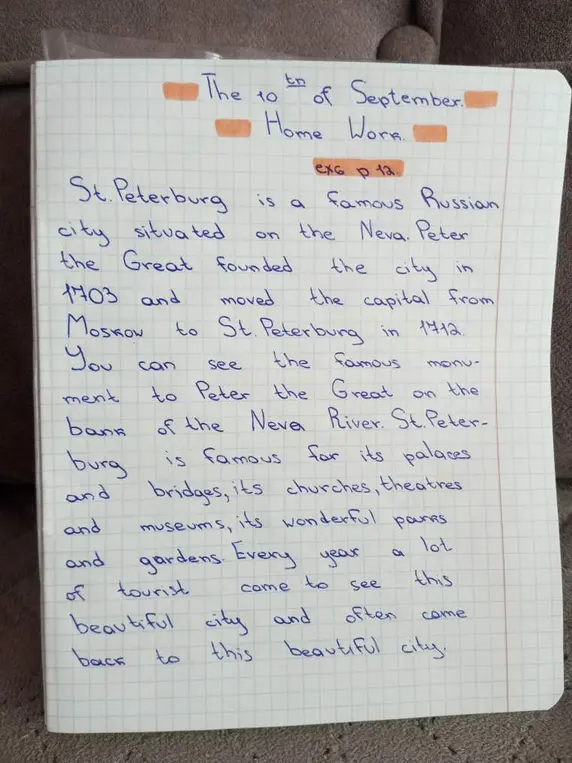 The 10th of September.
Home Work.
ex6 p 12.
St. Peterburg is a famous Russian
city situated on the Neva. Peter
the Great founded the city in
1703 and moved the capital from
Moskow to St. Peterburg in 1712.
You can see the famous monu-
ment to Peter the Great on the
bank of the Neva River. St. Peter-
burg is famous for its palaces
and bridges, its churches, theatres
and museums, its wonderful parks
and gardens. Every year a lot
of tourist come to see this
beautiful city and often come
back to this beautiful city.